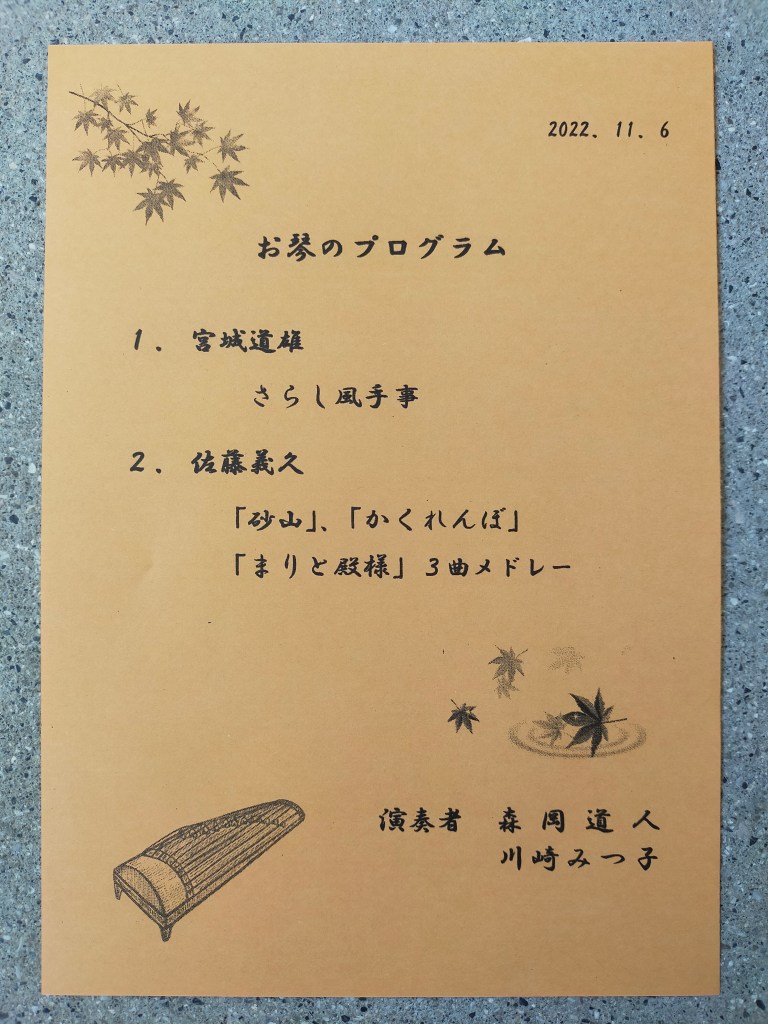 2022. 11. 6
お琴のプログラム
1. 宮城道雄
さらし風手事
2. 佐藤義久
「砂山」、「かくれんぼ」
「まりと殿様」３曲メドレー
演奏者　森岡道人
川崎みつ子